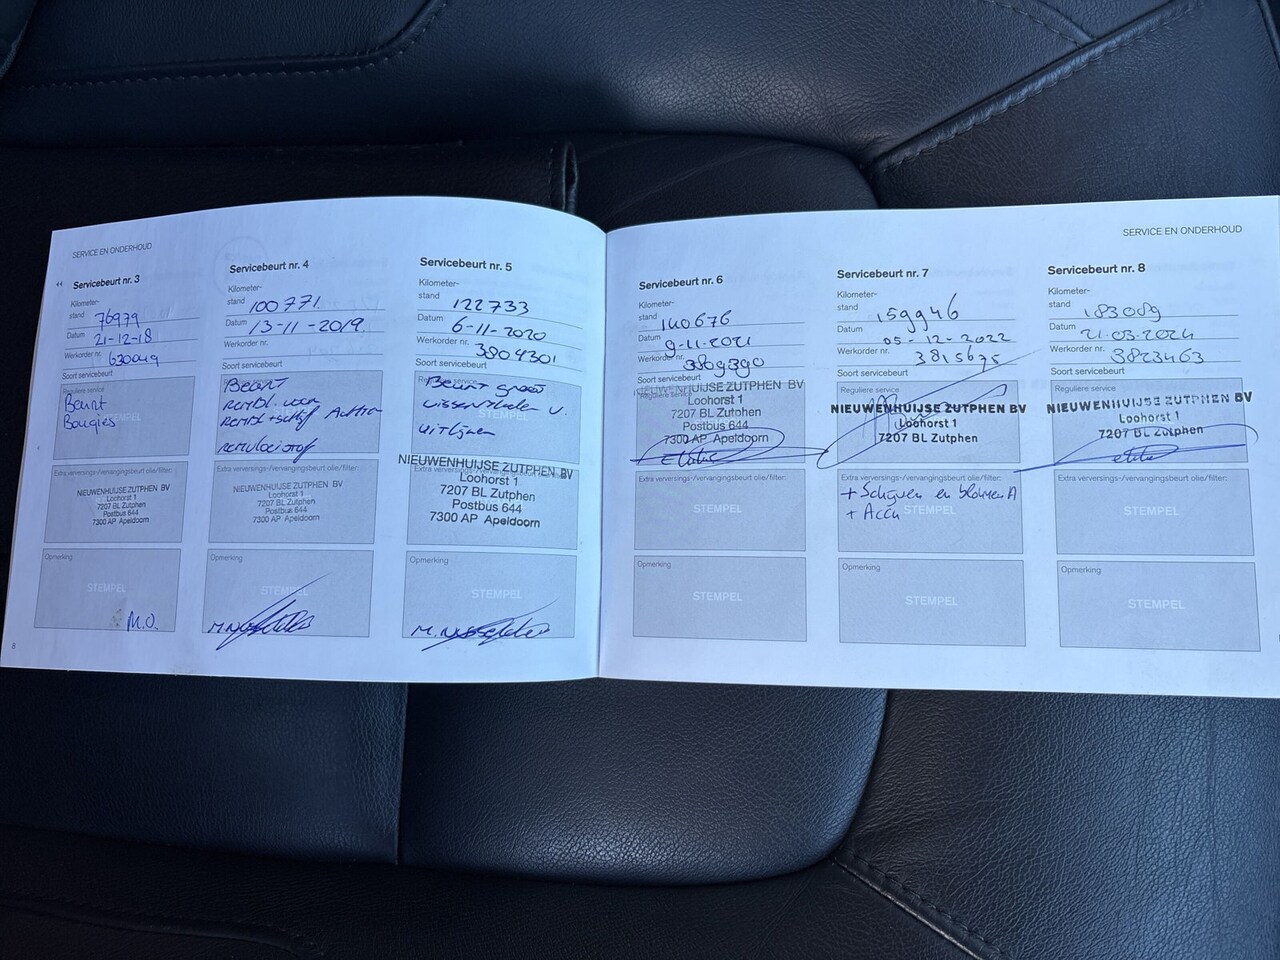 SERVICE EN ONDERHOUD
Servicebeurt nr. 3
Kilometer-
stand 76979
Datum 21-12-18
Werkorder nr. 630049
Soort servicebeurt
Reguliere service
Beurt
Bougies
STEMPEL
Extra verversings-/vervangingsbeurt olie/filter:
NIEUWENHUIJSE ZUTPHEN BV
Loohorst 1
7207 BL Zutphen
Postbus 644
7300 AP Apeldoorn
Opmerking
STEMPEL
M.O.
8
Servicebeurt nr. 4
Kilometer-
stand 100771.
Datum 13-11-2019.
Werkorder nr.
Soort servicebeurt
Beurt
rembl. voor
rembl + schijf Achter
remvloeistof
Extra verversings-/vervangingsbeurt olie/filter:
NIEUWENHUIJSE ZUTPHEN BV
Loohorst 1
7207 BL Zutphen
Postbus 644
7300 AP Apeldoorn
Opmerking
STEMPEL
Servicebeurt nr. 5
Kilometer-
stand 122733
Datum 6-11-2020
Werkorder nr. 3804301
Soort servicebeurt
Reguliere service
Beurt groot
wisserbladen v.
STEMPEL
uitlijnen
NIEUWENHUIJSE ZUTPHEN BV
Loohorst 1
7207 BL Zutphen
Postbus 644
7300 AP Apeldoorn
Opmerking
STEMPEL
SERVICE EN ONDERHOUD
Servicebeurt nr. 6
Kilometer-
stand 140676
Datum 9-11-2021
Werkorder nr. 3809390
Soort servicebeurt
Reguliere service
NIEUWENHUIJSE ZUTPHEN BV
Loohorst 1
7207 BL Zutphen
Postbus 644
7300 AP Apeldoorn
Extra verversings-/vervangingsbeurt olie/filter:
STEMPEL
Opmerking
STEMPEL
Servicebeurt nr. 7
Kilometer-
stand 159946
Datum 05-12-2022
Werkorder nr. 3815675
Soort servicebeurt
Reguliere service
NIEUWENHUIJSE ZUTPHEN BV
Loohorst 1
7207 BL Zutphen
Extra verversings-/vervangingsbeurt olie/filter:
+ Schijven en blokken A
+ Accu
STEMPEL
Opmerking
STEMPEL
Servicebeurt nr. 8
Kilometer-
stand 183089
Datum 21-03-2024
Werkorder nr. 3823463
Soort servicebeurt
Reguliere service
NIEUWENHUIJSE ZUTPHEN BV
Loohorst 1
7207 BL Zutphen
Extra verversings-/vervangingsbeurt olie/filter:
STEMPEL
Opmerking
STEMPEL